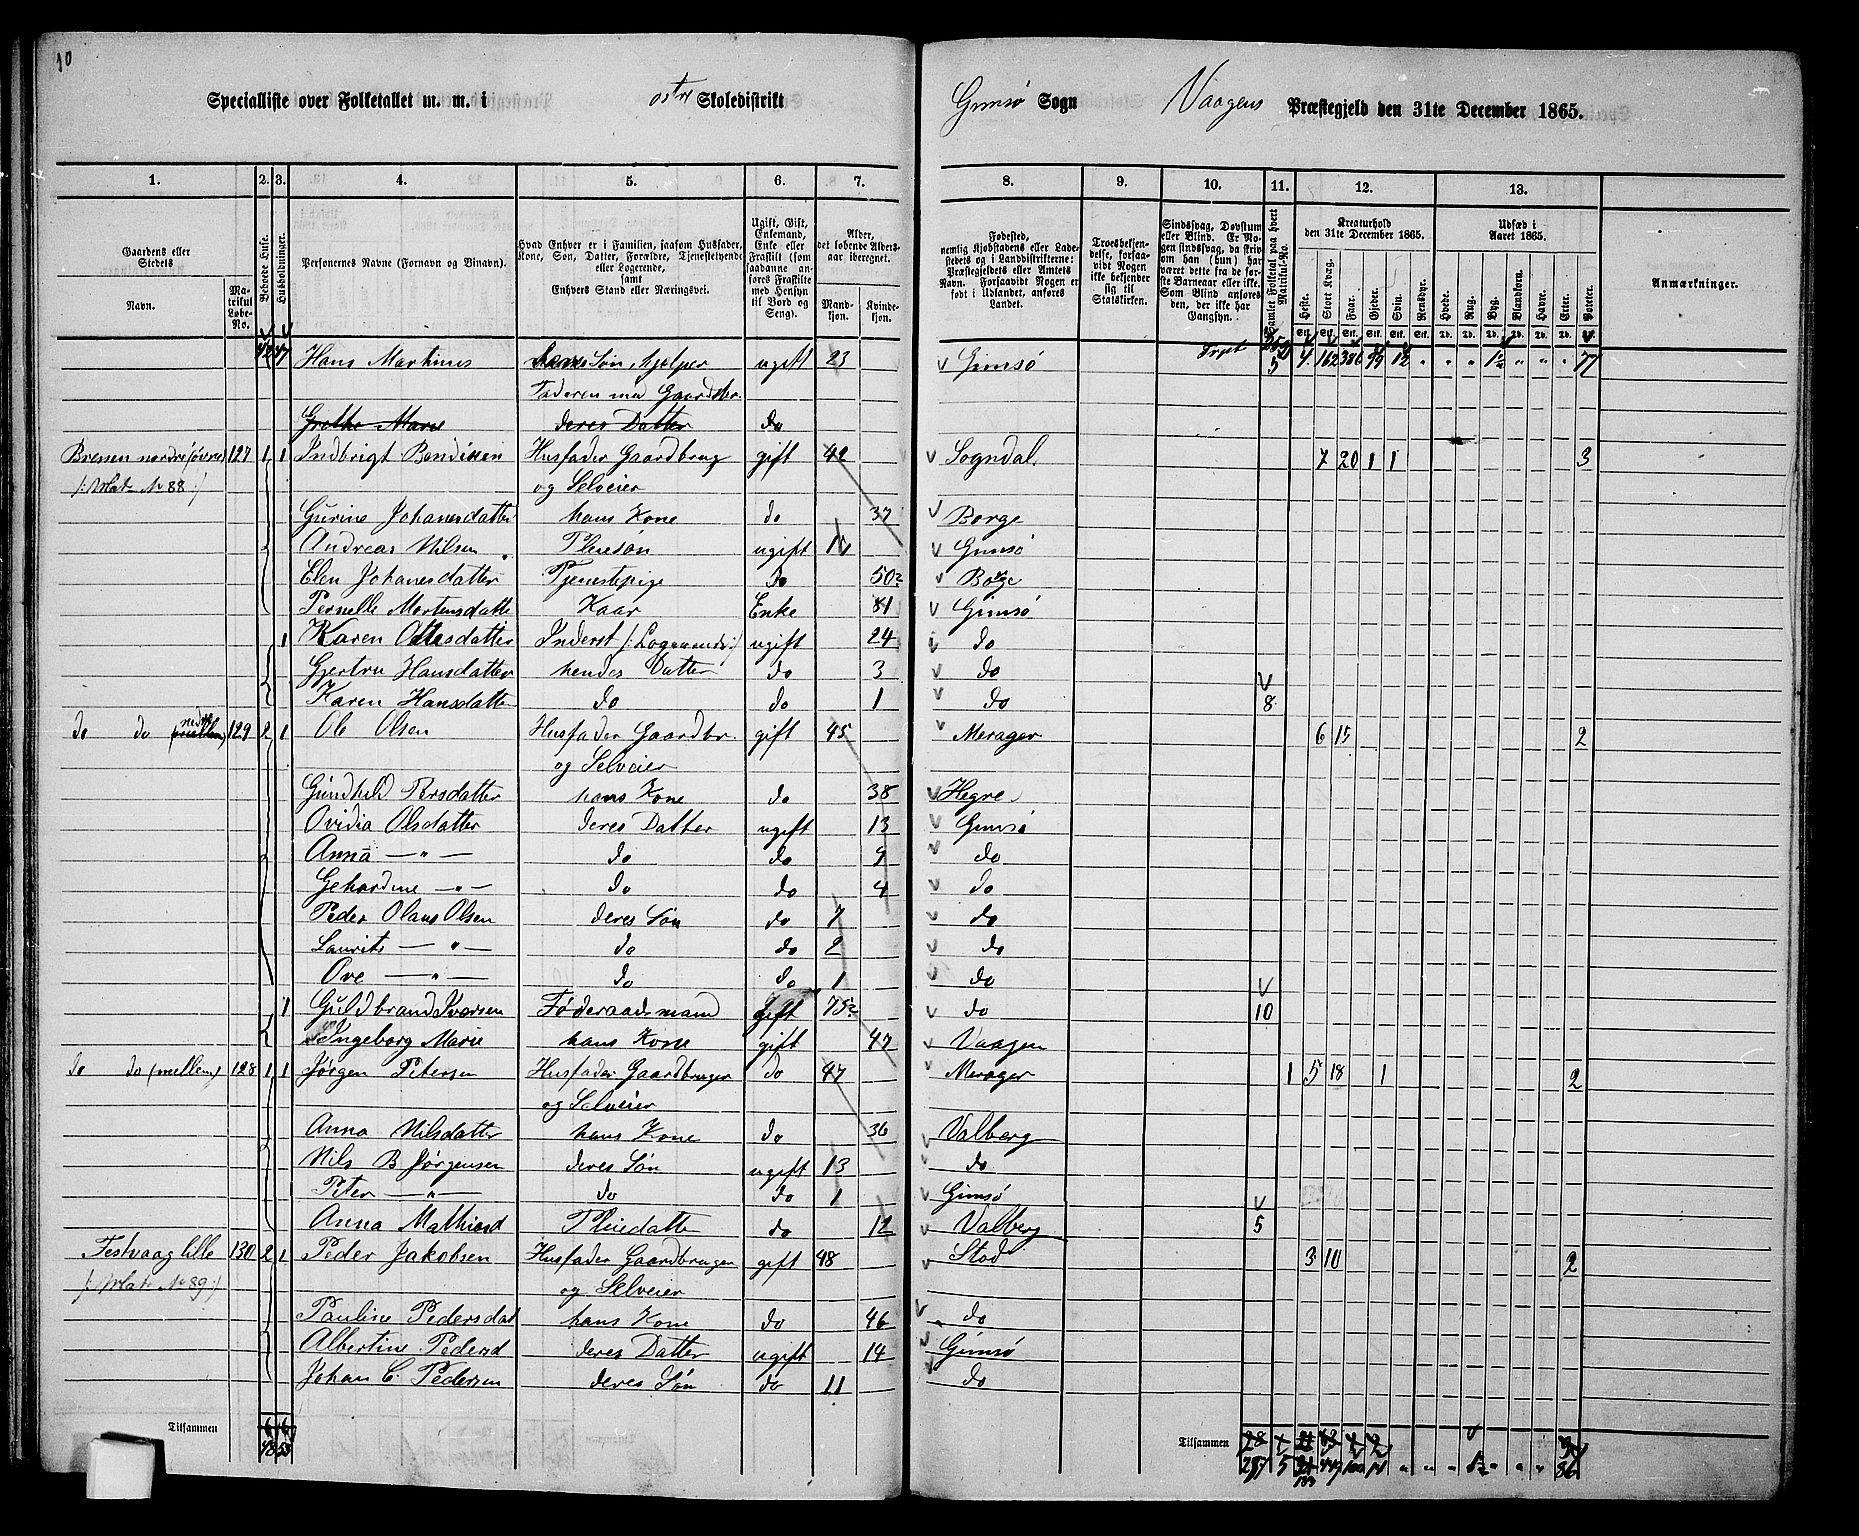 10
Specialliste over Folketallet m. m. i Skoledistrikt Gimsø Sogn Vaagens Præstegjeld den 31te December 1865.
1. 2. 3. 4. 5. 6. 7. 8. 9. 10. 11. 12. 13.
Gaardens eller Stedets
Navn.
Matrikul Løbe-No.
Beboede Huse.
Husholdninger.
Personernes Navne (Fornavn og Vinavn).
Hvad Enhver er i Familien, saasom Husfader, Kone, Søn, Datter, Forældre, Tjenestetyende eller Logerende, samt Enhvers Stand eller Næringsvei.
Ugift, Gift, Enkemand, Enke eller Fraskilt (som saadanne anføres Fraskilte med Hensyn til Bord og Seng).
Alder, det løbende Alders-aar iberegnet.
Mand-kjøn. Kvinde-kjøn.
Fødested, nemlig Kjøbstadens eller Ladestedets og i Landdistrikterne: Præstegjeldets eller Amtets Navn. Forsaavidt Nogen er født i Udlandet, anføres Landet.
Troesbekjendelse, forsaavidt Nogen ikke bekjender sig til Statskirken.
Sindssvag, Døvstum eller Blind. Er Nogen sindssvag, da skrives om han (hun) har været dette fra de første Barneaar eller ikke. Som Blind anføres den, der ikke har Gangsyn.
Samlet Folketal paa hvert Matrikul-No.
Kreaturhold den 31te December 1865.
Heste. Stort Kvæg. Faar. Gjeder. Svin. Rensdyr.
Udsæd i Aaret 1865.
Hvede. Rug. Byg. Blandkorn. Havre. Erter. Poteter.
Anmærkninger.
Hans Martinus Søn, hjelper ugift 23 Gimsø
Faderen med Gaardsbr.
Grethe Marie deres Datter do
Bressen nordre (øvre) 127 1 1 Indbrigt Bendixen Husfader Gaardbrug gift 42 Sogndal. 7 20 1 1 3
(: Mat. No 88 :) og Selveier
Gurine Johanesdatter hans Kone do 37 Borge
Andreas Nilsen Pleiesøn ugift Gimsø
Elen Johanesdatter Tjenestepige do 50 Borge
Pernelle Mortensdatte Kaar Enke 81 Gimsø
1 Karen Olesdatter Inderst ugift 24 do
Gjertru Hansdatter hendes Datter do 3 do
Karen Hansdatter do do 1 do 8
do do nedre 129 2 1 Ole Olsen Husfader Gaardbr. gift 45 Merager 6 15 2
og Selveier
Gundhild Persdatter hans Kone do 38 Hegre
Ovidia Olsdatter deres Datter ugift 13 Gimsø
Anna — " — do do 9 do
Gehardine — " — do do 4 do
Peder Olaus Olsen deres Søn do 7 do
Laurits — " — do do 2 do
Ove — " — do do 1 do
1 Guldbrand Iversen Føderaadsmand gift 75 do 10
Ingeborg Marie hans Kone gift 47 Vaagen
do do (mellem) 128 1 1 Jørgen Petersen Husfader Gaardbruger do 47 Merager 1 5 18 1 2
og Selveier
Anna Nilsdatter hans Kone do 36 Valberg
Nils B Jørgensen deres Søn ugift 13 do
Peter — " — do do 1 Gimsø
Anna Mathiasd Pleiedatte do 12 Valberg 5
Festvaag lille 130 2 1 Peder Jakobsen Husfader Gaardbruger gift 48 Stod 3 10 2
(: Mat. No 89 :) og Selveier
Pauline Pedersdat hans Kone do 46 do
Albertine Pedersd deres Datter ugift 14 Gimsø
Johan C. Pedersen deres Søn do 11 do
Tilsammen 6 6 Tilsammen
48 53